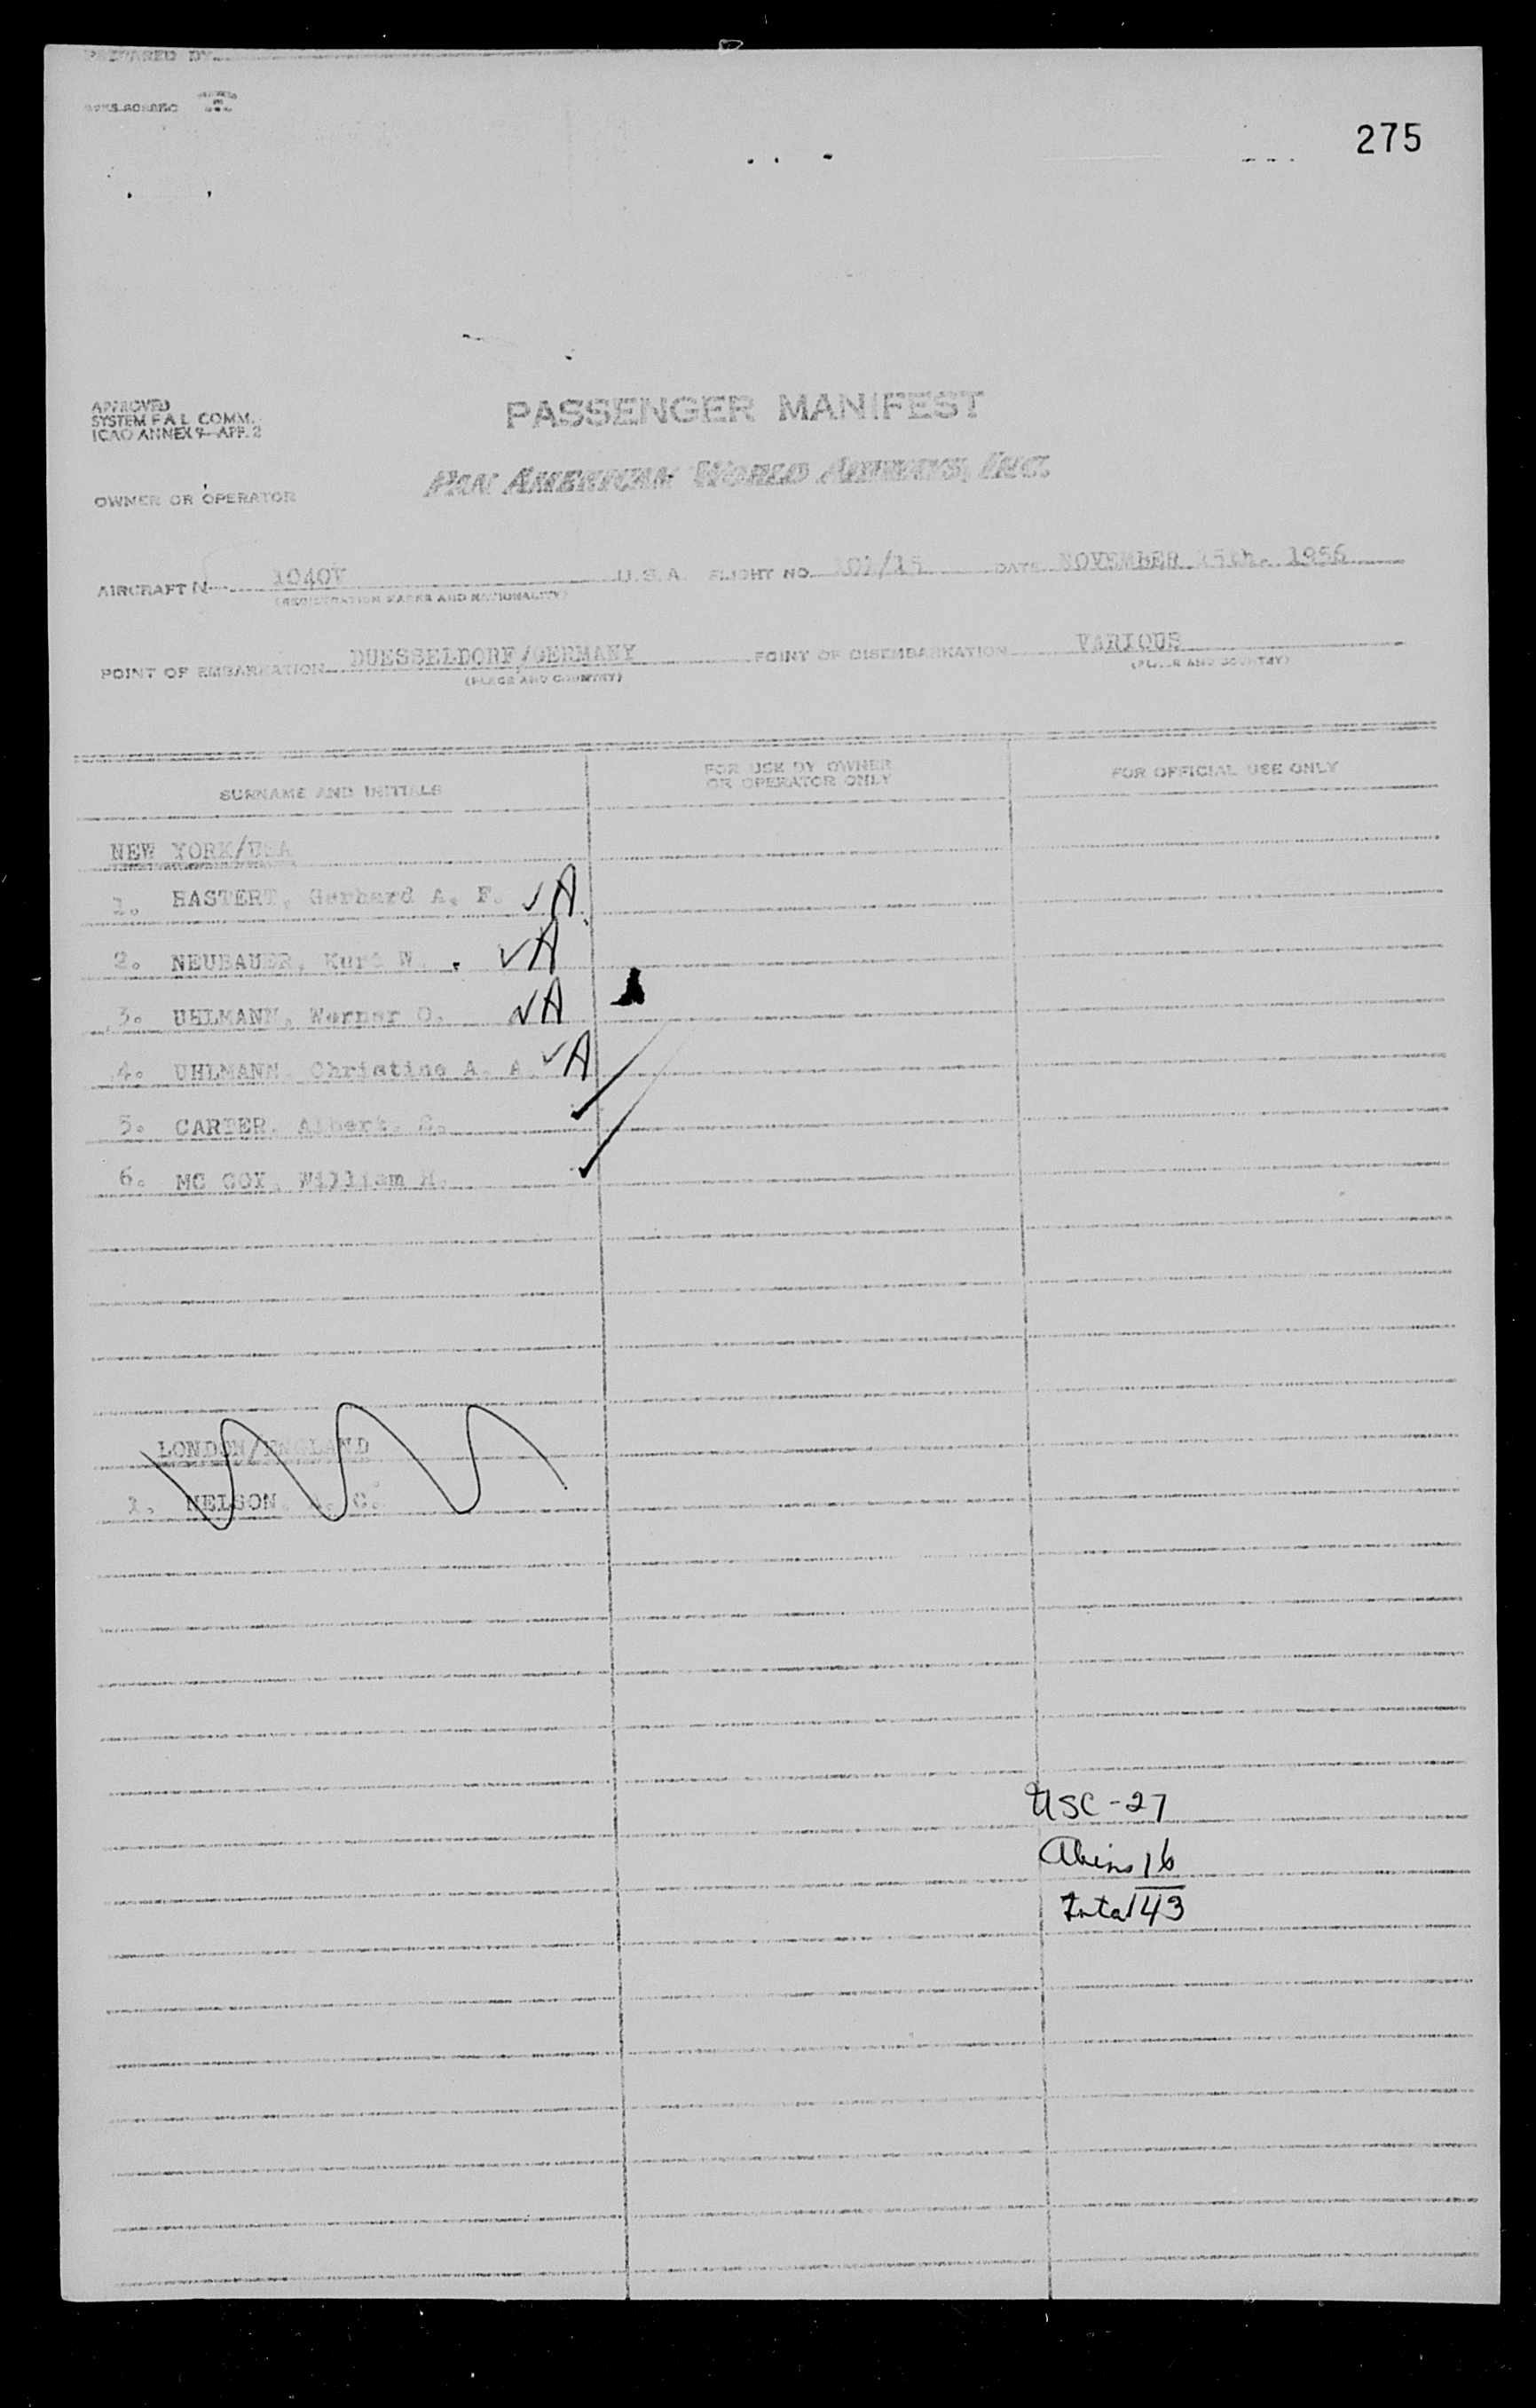 PREPARED BY
275
APPROVED
SYSTEM F A L COMM.
ICAO ANNEX 9—APP. 2
PASSENGER MANIFEST
OWNER OR OPERATOR PAN AMERICAN WORLD AIRWAYS, INC.
AIRCRAFT N 1040V U.S.A. FLIGHT NO. 101/15 DATE NOVEMBER 15th. 1956
(REGISTRATION MARKS AND NATIONALITY)
POINT OF EMBARKATION DUESSELDORF/GERMANY POINT OF DISEMBARKATION VARIOUS
(PLACE AND COUNTRY) (PLACE AND COUNTRY)
SURNAME AND INITIALS FOR USE BY OWNER OR OPERATOR ONLY FOR OFFICIAL USE ONLY
NEW YORK/USA
1. HASTERT, Gerhard A. F. ✓ A
2. NEUBAUER, Kurt W. ✓ A
3. UHLMANN, Werner O. ✓ A
4. UHLMANN, Christine A. A ✓ A
5. CARTER, Albert. ✓
6. MC COY, William ✓
LONDON/ENGLAND
1. NELSON, C.
USC - 27
Aliens 16
Total 43